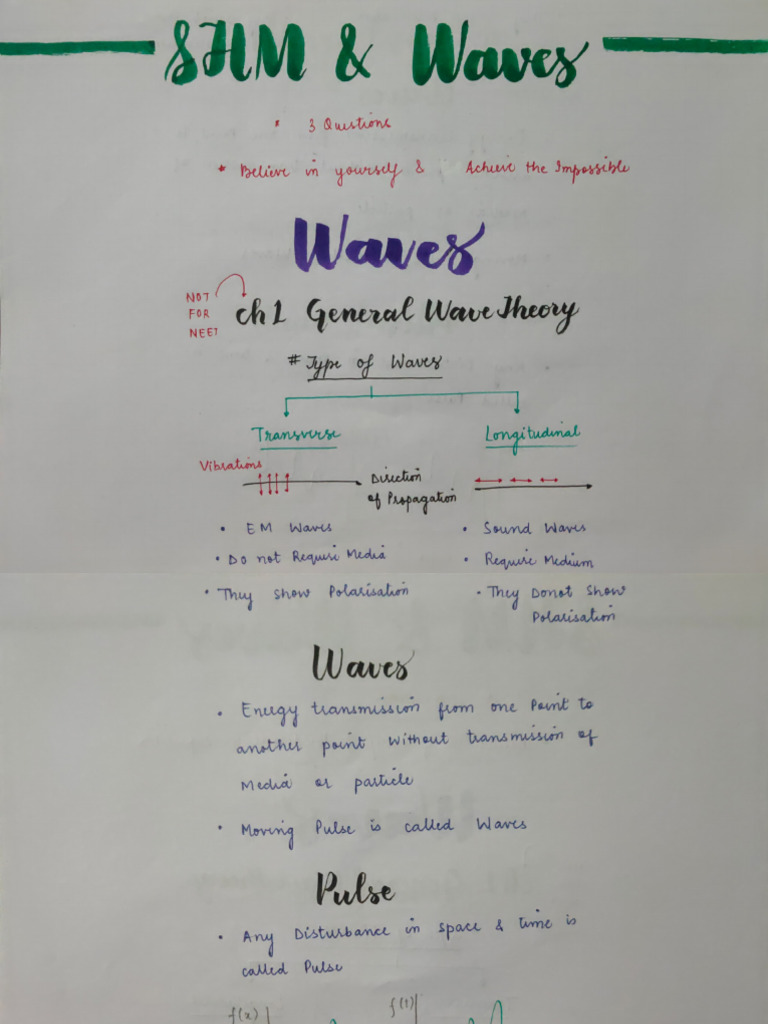 SHM & Waves
* 3 Questions
* Believe in yourself & Achieve the Impossible
Waves
NOT
FOR
NEET
ch 1 General Wave Theory
# Type of Waves
Transverse
Longitudinal
Vibrations
Direction
of Propagation
• EM Waves
• Sound Waves
• Do not Require Media
• Require Medium
• They Show Polarisation
• They Donot Show
Polarisation
Waves
• Energy transmission from one Point to
another point without transmission of
Media or particle
• Moving Pulse is called Waves
Pulse
• Any Disturbance in space & time is
called Pulse
f(x)
f(t)